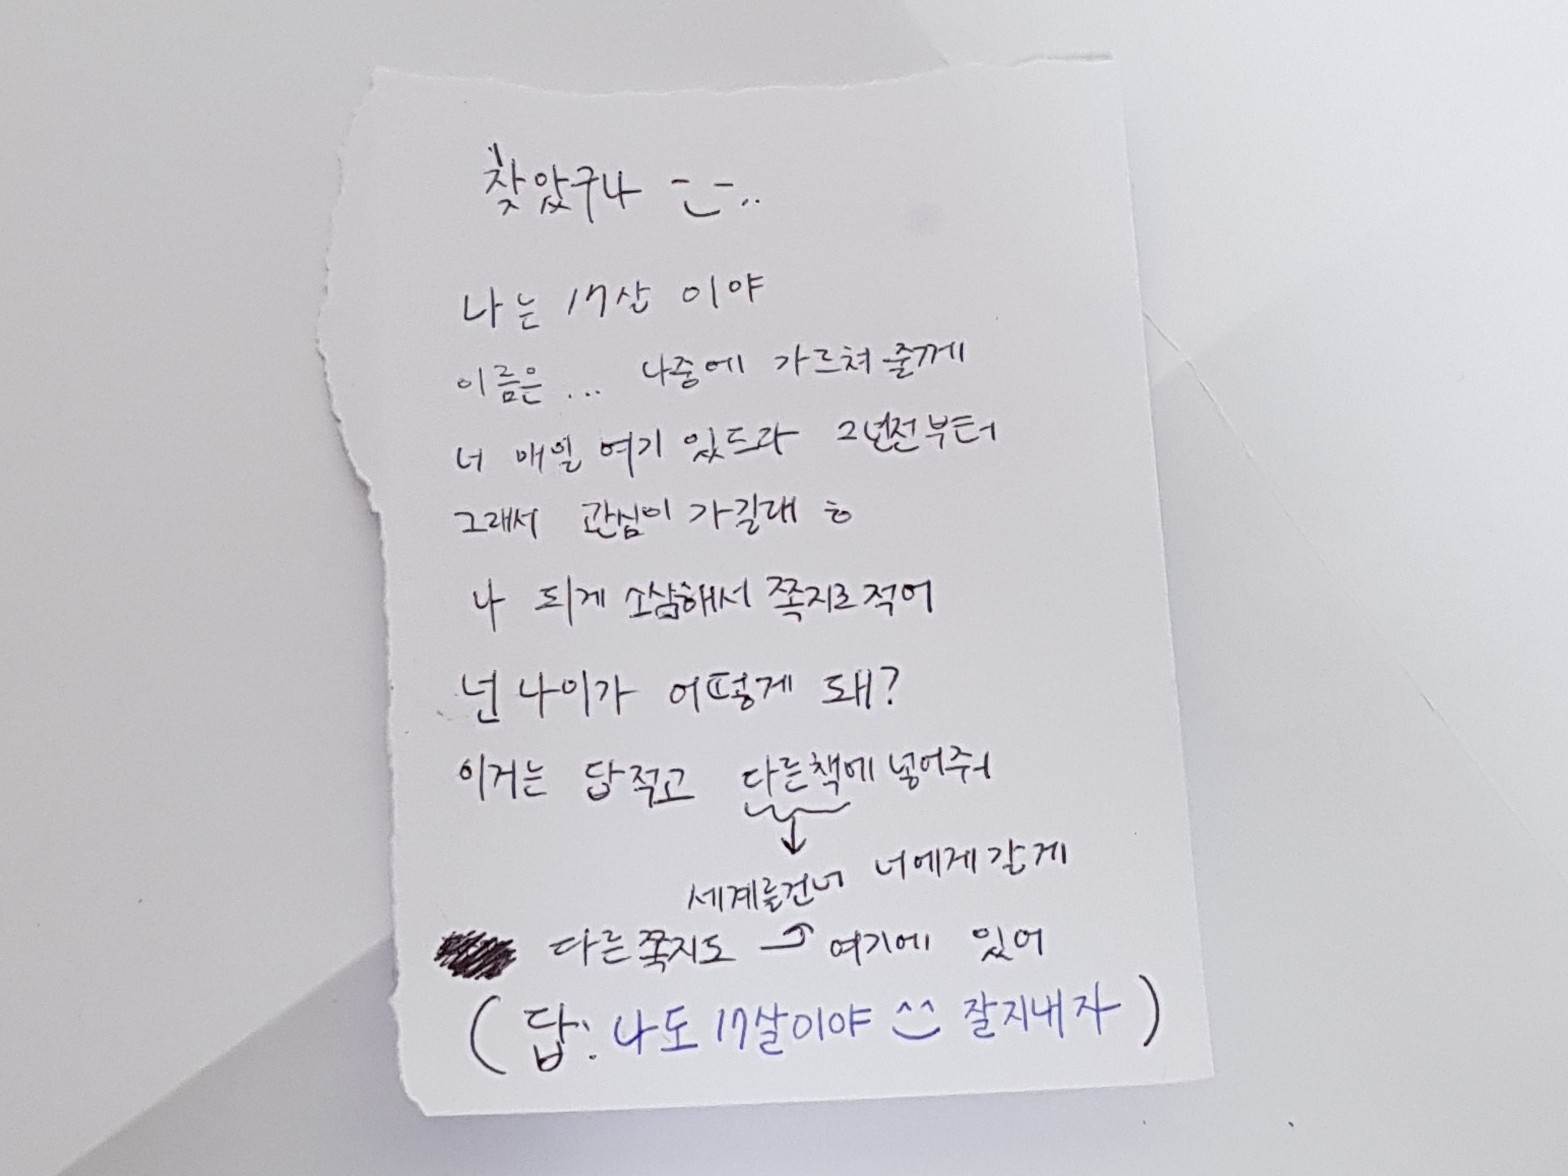 찾았구나
나는 17살 이야
이름은 ... 나중에 가르쳐 줄께
너 매일 여기 있드라 2년전부터
그래서 관심이 가길래 ㅎ
나 되게 소심해서 쪽지로 적어
넌 나이가 어떻게 돼?
이거는 답 적고 다른책에 넣어줘
↓
세계를건너 너에게갈게
다른쪽지도 → 여기에 있어
(답: 나도 17살이야 ^^ 잘지내자)